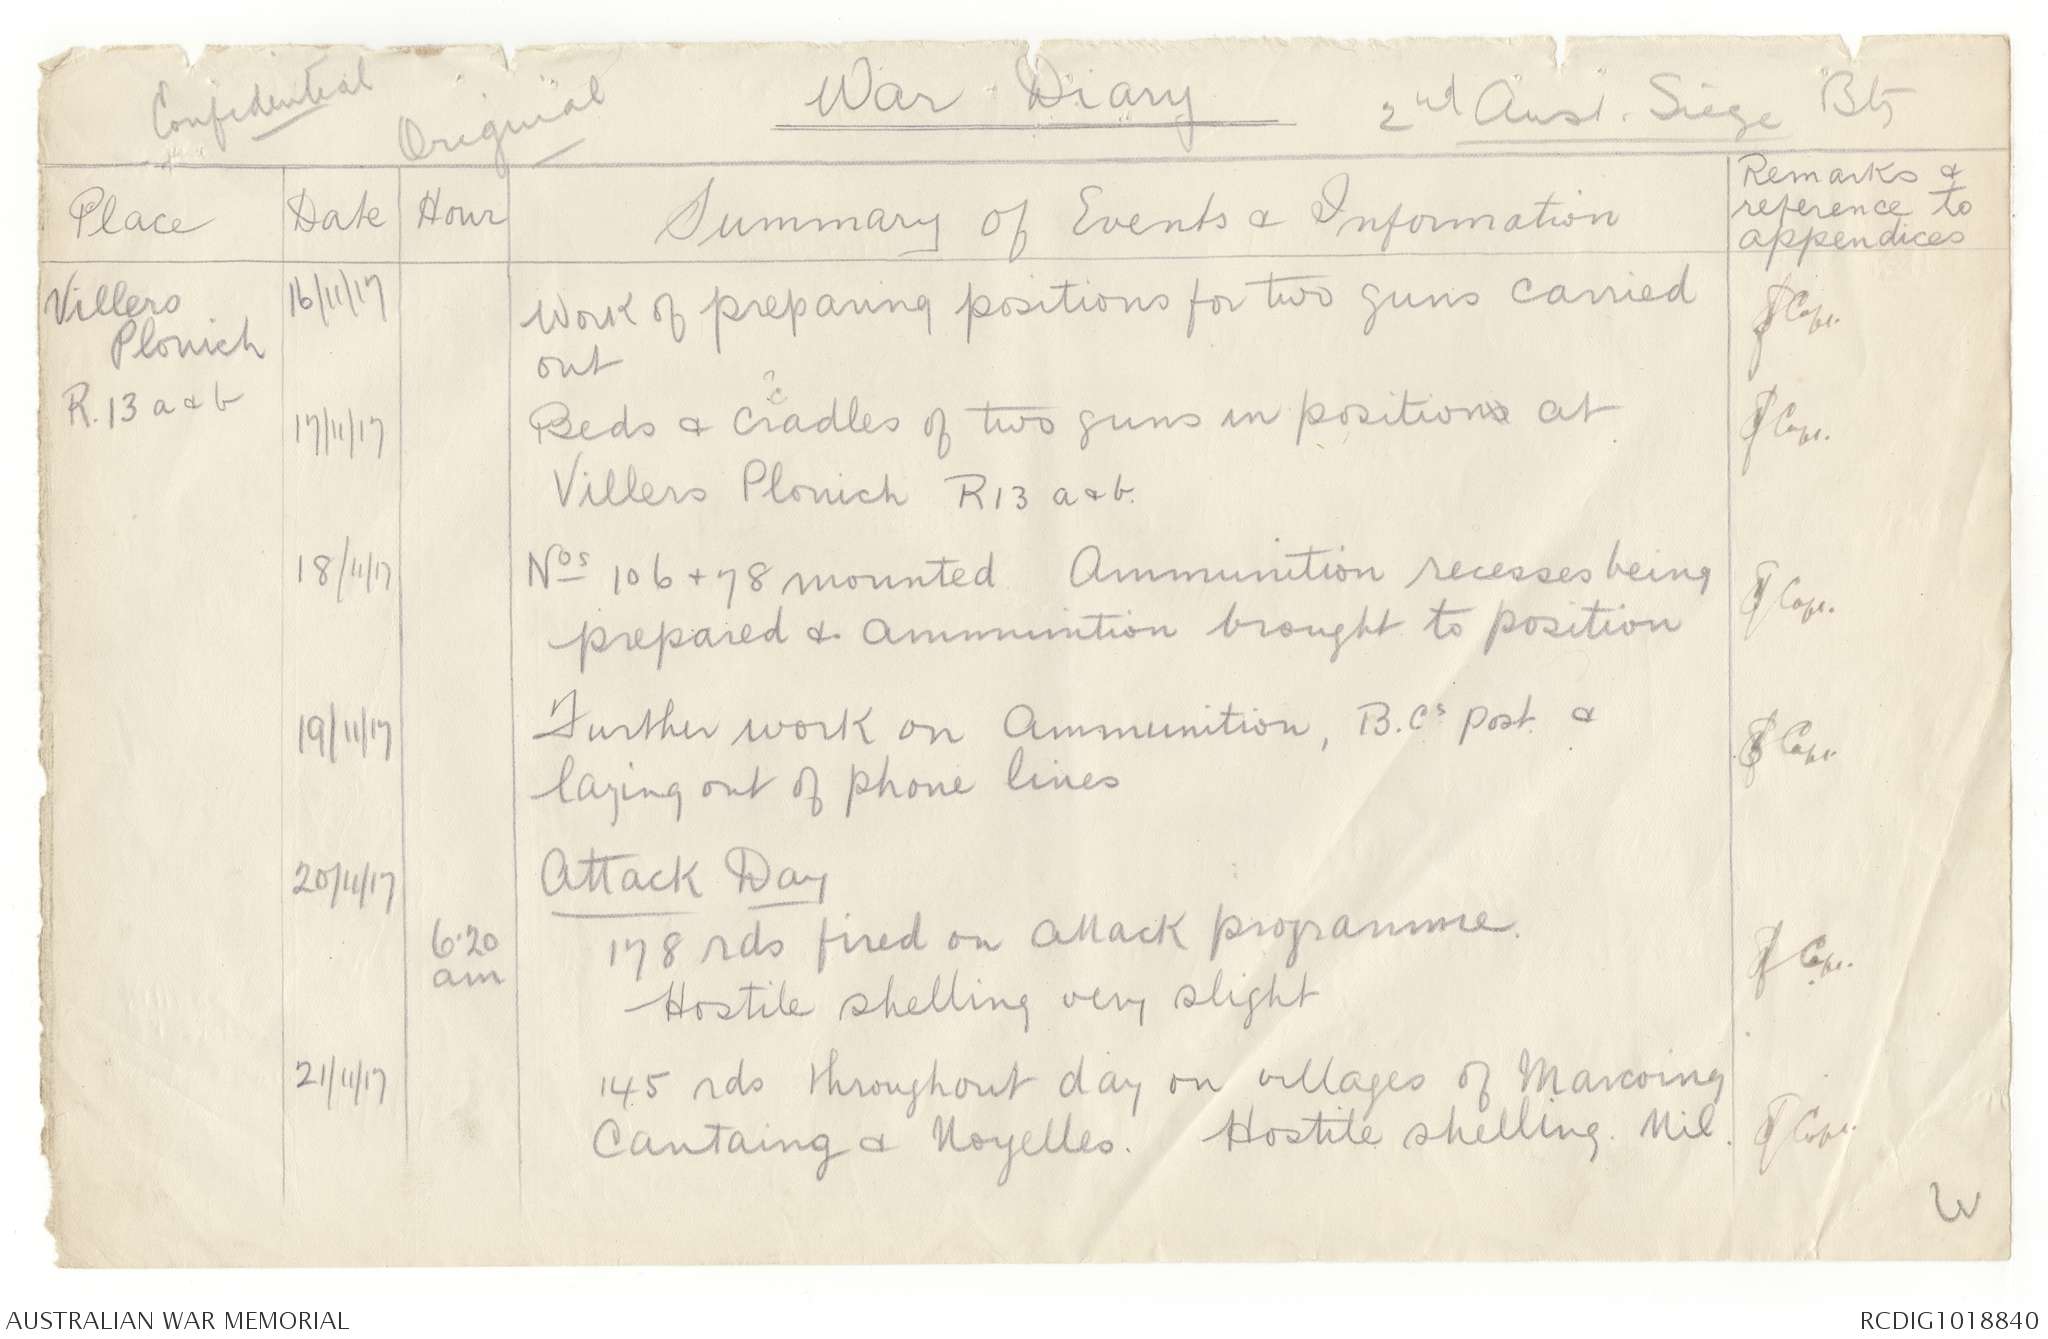 Confidential
Original
War Diary
2nd Aust. Siege Bty
Place
Date
Hour
Summary of Events & Information
Remarks &
reference to
appendices
Villers
Plouich
R.13 a & b
16/11/17
Work of preparing positions for two guns carried
out
Capt.
17/11/17
Beds & cradles of two guns in position at
Villers Plouich R13 a & b.
Capt.
18/11/17
Nos 106 + 78 mounted Ammunition recesses being
prepared & ammunition brought to position
Capt.
19/11/17
Further work on Ammunition, B.Cs post &
laying out of phone lines
Capt.
20/11/17
Attack Day
6.20
am
178 rds fired on attack programme.
Hostile shelling very slight
Capt.
21/11/17
145 rds throughout day on villages of Marcoing
Cantaing & Noyelles. Hostile shelling. Nil.
Capt.
AUSTRALIAN WAR MEMORIAL
RCDIG1018840